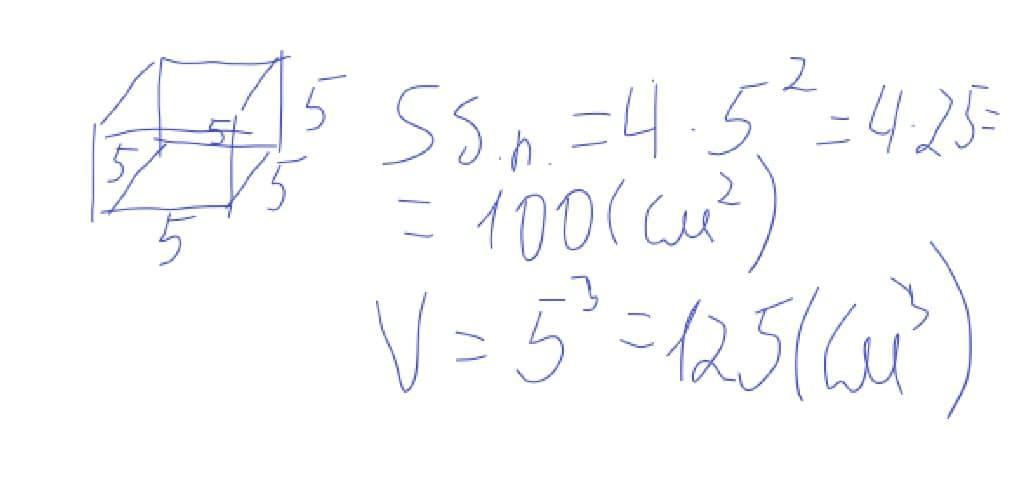 5
5
5
5
5
Sб.п. = 4 · 5² = 4·25 =
= 100 (см²)
V = 5³ = 125 (см³)